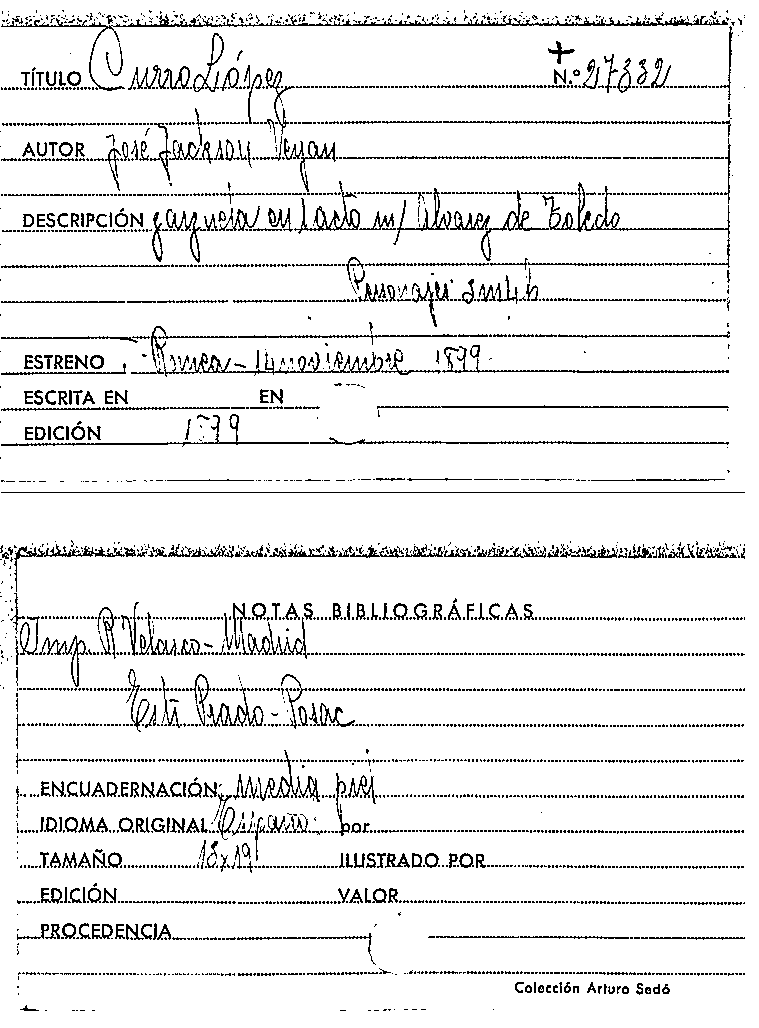 TÍTULO Curro López + N.º 27332
AUTOR José Jackson Veyan
DESCRIPCIÓN zarzuela en 1 acto m/ Alvarez de Toledo
Personajes 3m4h
ESTRENO Romea - 14 noviembre 1899
ESCRITA EN EN
EDICIÓN 1899
NOTAS BIBLIOGRÁFICAS
Imp. R Velasco - Madrid
Prado -
ENCUADERNACIÓN: media piel
IDIOMA ORIGINAL por
TAMAÑO 13x19 ILUSTRADO POR
EDICIÓN VALOR
PROCEDENCIA
Colección Arturo Sedó